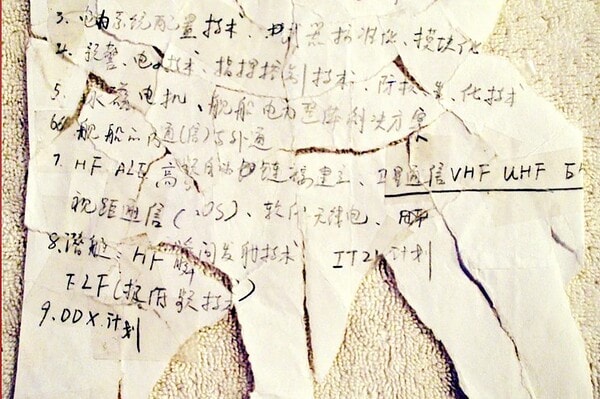 3. 电力系统配置技术、武器标准化、模块化
4. 预警、电 技术、指挥控制技术、防 化技术
5. 永磁电机、舰船电力 解决方案
6. 舰船 内通(信)与外通
7. HF ALE 高频自动 链接建立、卫星通信 VHF UHF
视距通信( OS)、软 无线电、
8. 潜艇: HF 瞬间发射技术 IT21计划
ELF(极低频技术)
9. DDX 计划